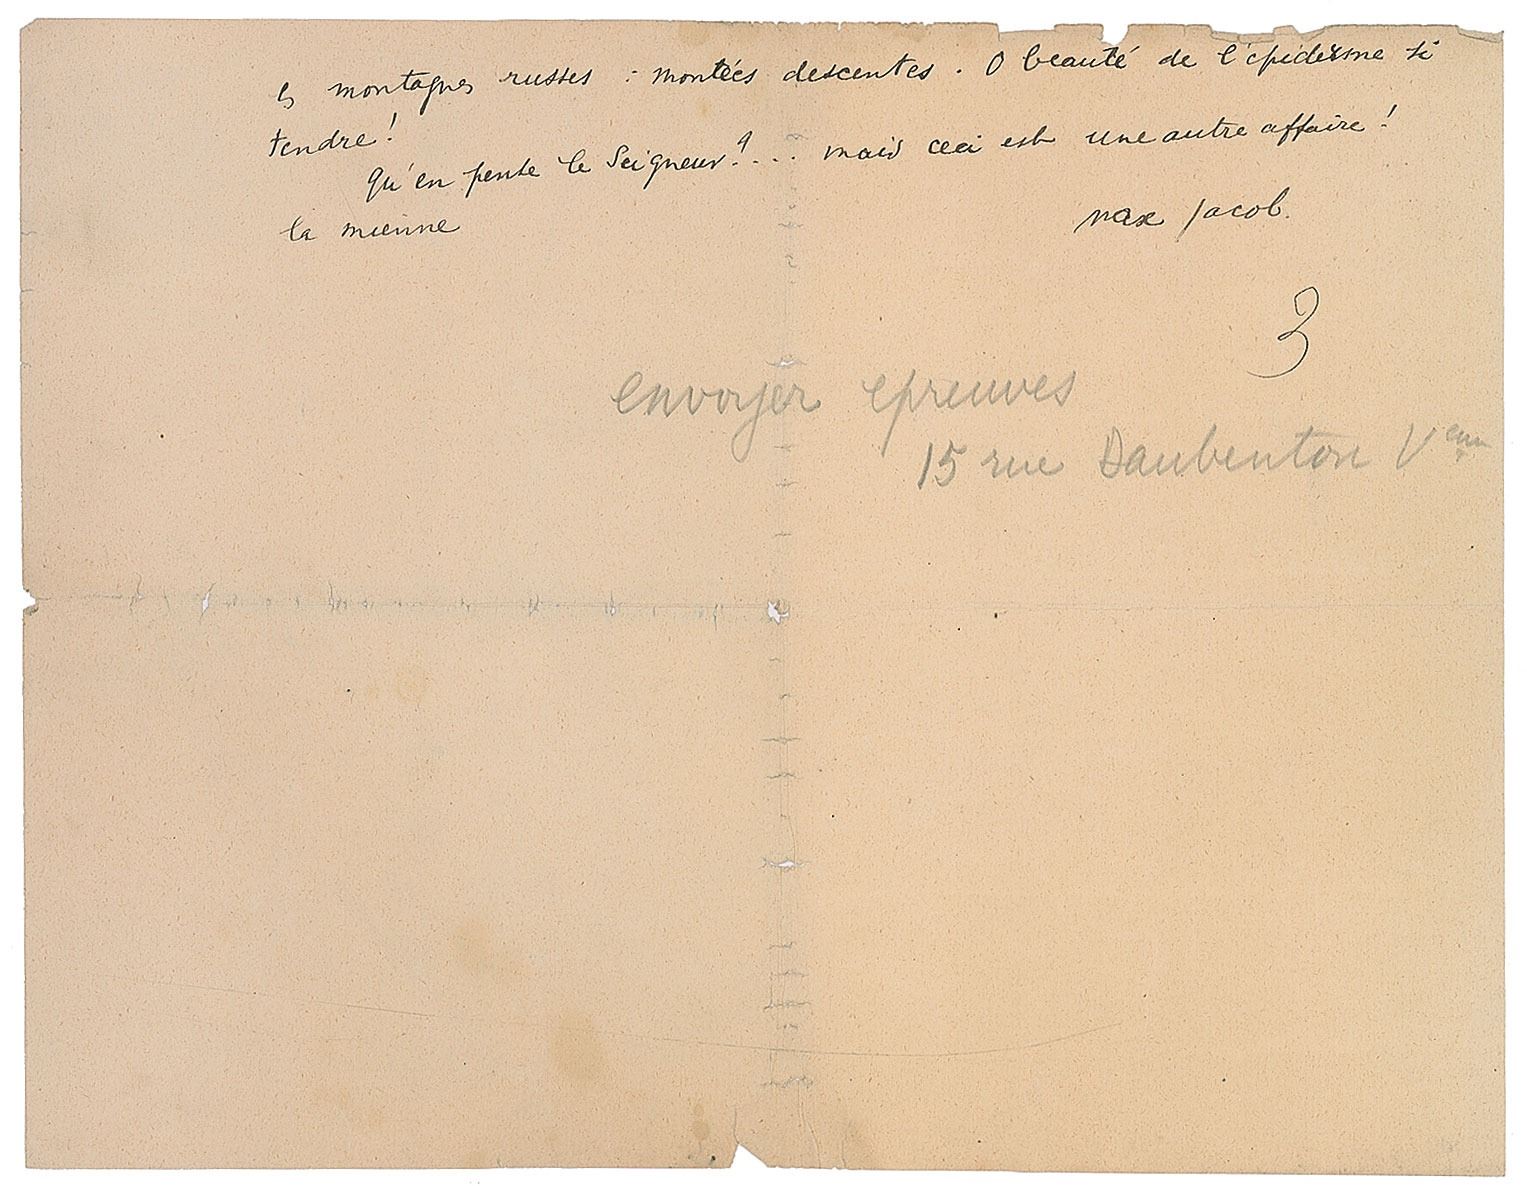 les montagnes russes : montées descentes. O beauté de l'épiderme si
tendre!
qu'en pense le Seigneur?... mais ceci est une autre affaire!
la mienne
max Jacob.
3
envoyer epreuves
15 rue Daubenton Veme